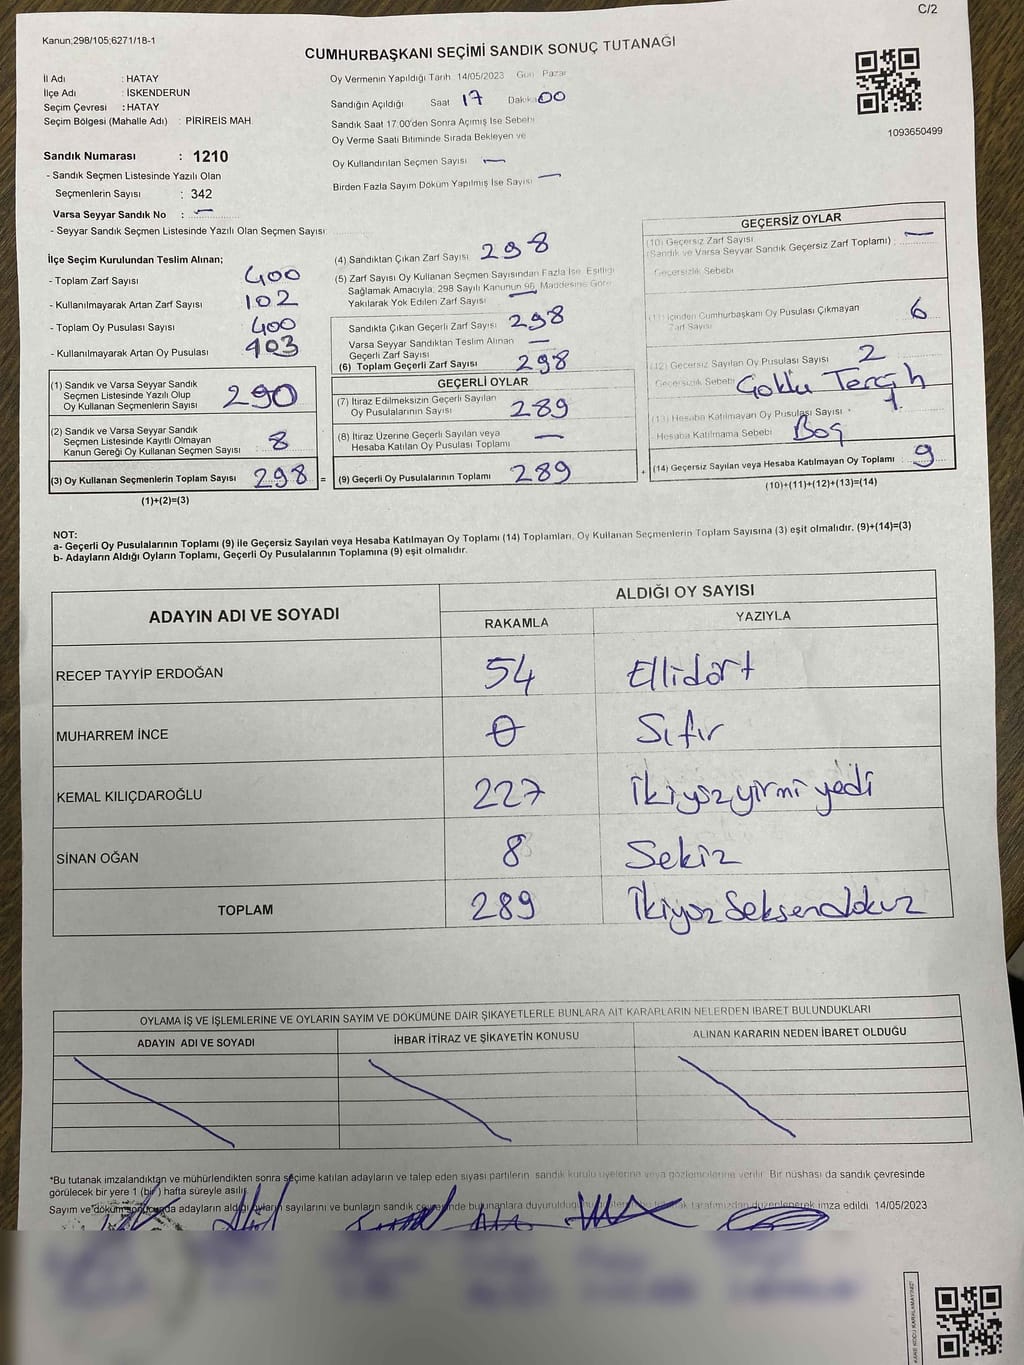 C/2
Kanun;298/105;6271/18-1
CUMHURBAŞKANI SEÇİMİ SANDIK SONUÇ TUTANAĞI
1093650499
İl Adı : HATAY
İlçe Adı : İSKENDERUN
Seçim Çevresi : HATAY
Seçim Bölgesi (Mahalle Adı) : PİRİREİS MAH.
Sandık Numarası : 1210
- Sandık Seçmen Listesinde Yazılı Olan
Seçmenlerin Sayısı : 342
Varsa Seyyar Sandık No : —
- Seyyar Sandık Seçmen Listesinde Yazılı Olan Seçmen Sayısı
Oy Vermenin Yapıldığı Tarih 14/05/2023 Gün Pazar
Sandığın Açıldığı Saat 17 Dakika 00
Sandık Saat 17:00'den Sonra Açımış İse Sebebi
Oy Verme Saati Bitiminde Sırada Bekleyen ve
Oy Kullandırılan Seçmen Sayısı —
Birden Fazla Sayım Döküm Yapılmış İse Sayısı —
İlçe Seçim Kurulundan Teslim Alınan;
- Toplam Zarf Sayısı 400
- Kullanılmayarak Artan Zarf Sayısı 102
- Toplam Oy Pusulası Sayısı 400
- Kullanılmayarak Artan Oy Pusulası 103
(1) Sandık ve Varsa Seyyar Sandık
Seçmen Listesinde Yazılı Olup
Oy Kullanan Seçmenlerin Sayısı 290
(2) Sandık ve Varsa Seyyar Sandık
Seçmen Listesinde Kayıtlı Olmayan
Kanun Gereği Oy Kullanan Seçmen Sayısı 8
(3) Oy Kullanan Seçmenlerin Toplam Sayısı 298 =
(1)+(2)=(3)
(4) Sandıktan Çıkan Zarf Sayısı 298
(5) Zarf Sayısı Oy Kullanan Seçmen Sayısından Fazla İse, Eşitliği
Sağlamak Amacıyla, 298 Sayılı Kanunun 98. Maddesine Göre
Yakılarak Yok Edilen Zarf Sayısı —
Sandıkta Çıkan Geçerli Zarf Sayısı 298
Varsa Seyyar Sandıktan Teslim Alınan
Geçerli Zarf Sayısı —
(6) Toplam Geçerli Zarf Sayısı 298
GEÇERLİ OYLAR
(7) İtiraz Edilmeksizin Geçerli Sayılan
Oy Pusulalarının Sayısı 289
(8) İtiraz Üzerine Geçerli Sayılan veya
Hesaba Katılan Oy Pusulası Toplamı —
(9) Geçerli Oy Pusulalarının Toplamı 289 +
GEÇERSİZ OYLAR
(10) Geçersiz Zarf Sayısı
(Sandık ve Varsa Seyyar Sandık Geçersiz Zarf Toplamı) —
Geçersizlik Sebebi
(11) İçinden Cumhurbaşkanı Oy Pusulası Çıkmayan
Zarf Sayısı 6
(12) Geçersiz Sayılan Oy Pusulası Sayısı 2
Geçersizlik Sebebi Çoklu Tercih
(13) Hesaba Katılmayan Oy Pusulası Sayısı 1
Hesaba Katılmama Sebebi Boş
(14) Geçersiz Sayılan veya Hesaba Katılmayan Oy Toplamı 9
(10)+(11)+(12)+(13)=(14)
NOT:
a- Geçerli Oy Pusulalarının Toplamı (9) ile Geçersiz Sayılan veya Hesaba Katılmayan Oy Toplamı (14) Toplamları, Oy Kullanan Seçmenlerin Toplam Sayısına (3) eşit olmalıdır. (9)+(14)=(3)
b- Adayların Aldığı Oyların Toplamı, Geçerli Oy Pusulalarının Toplamına (9) eşit olmalıdır.
ADAYIN ADI VE SOYADI
ALDIĞI OY SAYISI
RAKAMLA YAZIYLA
RECEP TAYYİP ERDOĞAN 54 Ellidört
MUHARREM İNCE 0 Sıfır
KEMAL KILIÇDAROĞLU 227 İkiyüzyirmi yedi
SİNAN OĞAN 8 Sekiz
TOPLAM 289 İkiyüz Seksendokuz
OYLAMA İŞ VE İŞLEMLERİNE VE OYLARIN SAYIM VE DÖKÜMÜNE DAİR ŞİKAYETLERLE BUNLARA AİT KARARLARIN NELERDEN İBARET BULUNDUKLARI
ADAYIN ADI VE SOYADI İHBAR İTİRAZ VE ŞİKAYETİN KONUSU ALINAN KARARIN NEDEN İBARET OLDUĞU
*Bu tutanak imzalandıktan ve mühürlendikten sonra seçime katılan adayların ve talep eden siyasi partilerin sandık kurulu üyelerine veya gözlemcilerine verilir. Bir nüshası da sandık çevresinde
görülecek bir yere 1 (bir) hafta süreyle asılır.
Sayım ve döküm sonucunda adayların aldığı oyların sayılarını ve bunların sandık çevresinde bulunanlara duyurulduğu tarafımızdan düzenlenerek imza edildi 14/05/2023
KARE KODU KARALAMAYINIZ!